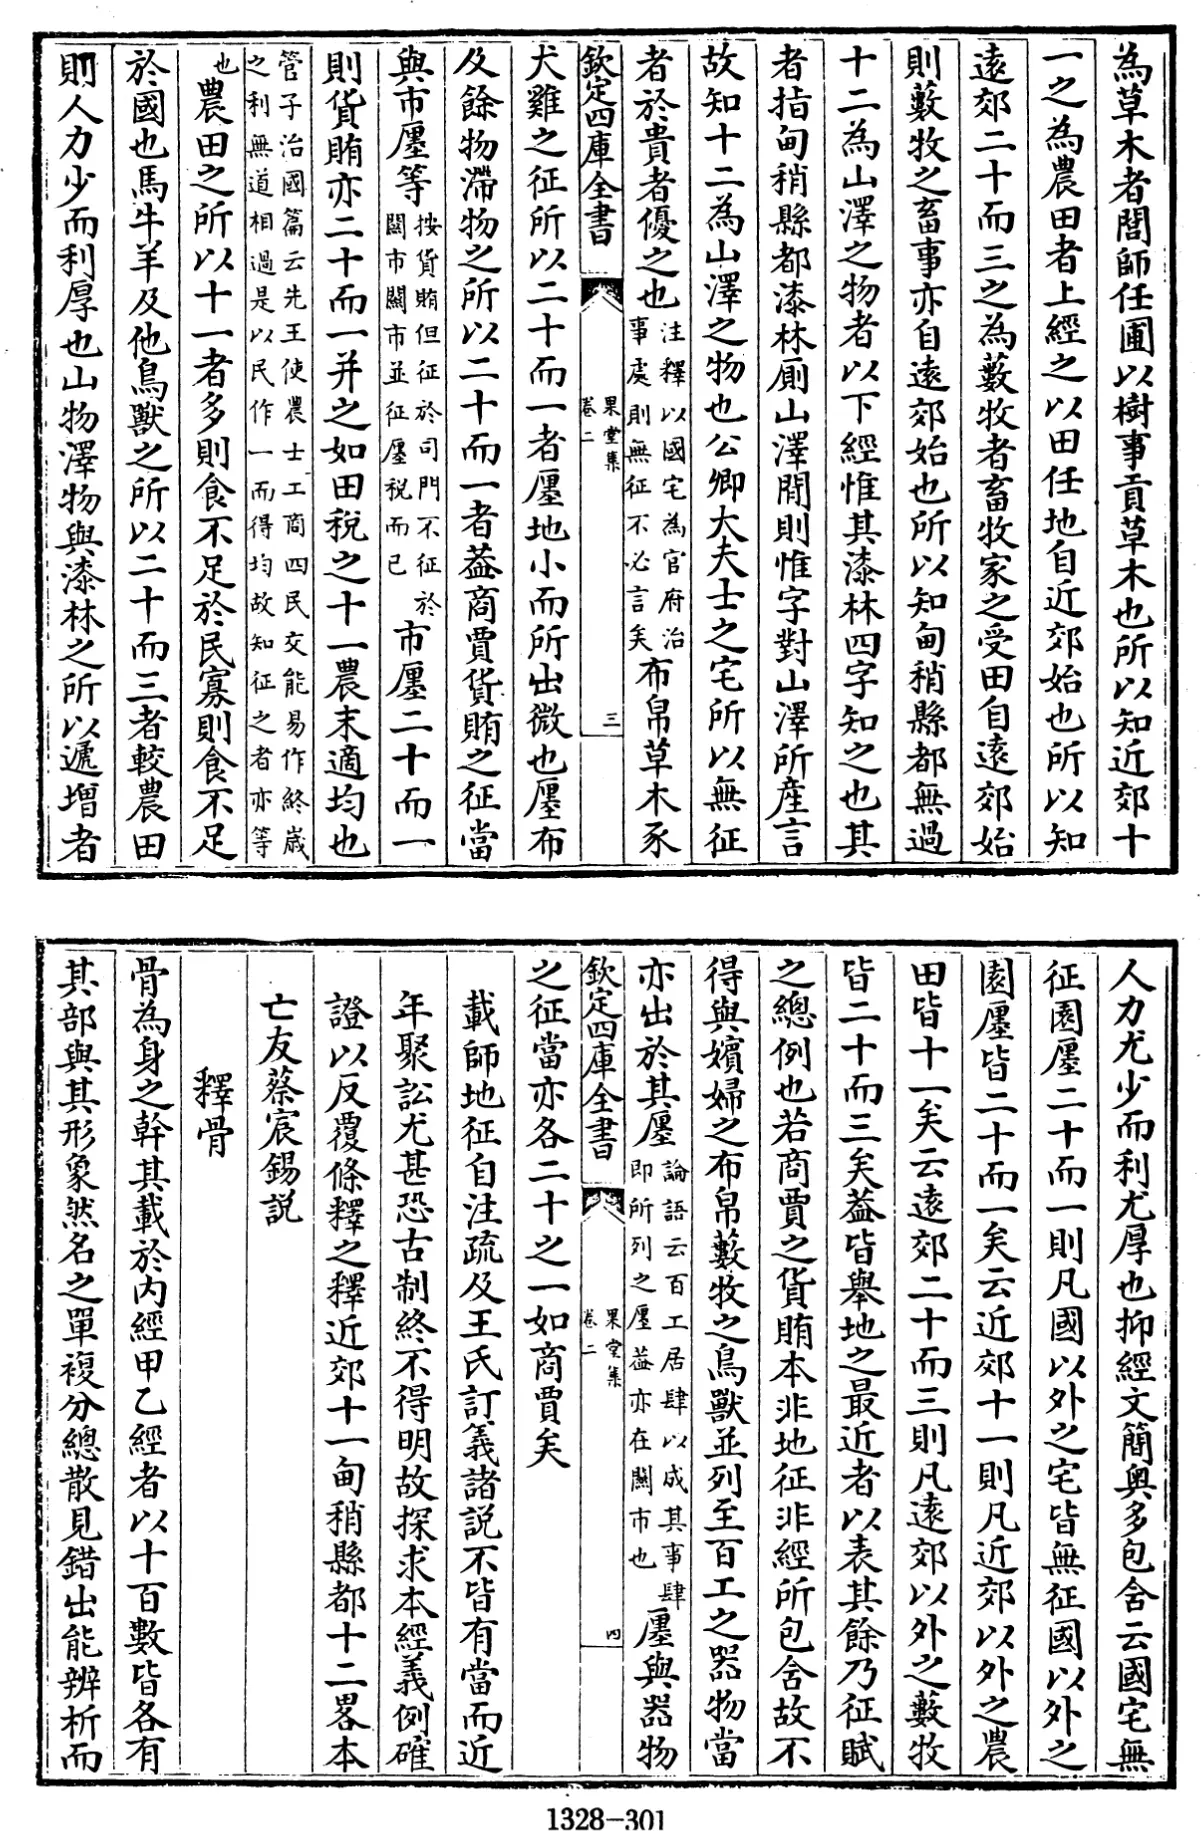 為草木者閭師任圃以樹事貢草木也所以知近郊十
一之為農田者上經之以田任地自近郊始也所以知
遠郊二十而三之為藪牧者畜牧家之受田自遠郊始
則藪牧之畜事亦自遠郊始也所以知甸稍縣都無過
十二為山澤之物者以下經惟其漆林四字知之也其
者指甸稍縣都漆林廁山澤間則惟字對山澤所產言
故知十二為山澤之物也公卿大夫士之宅所以無征
者於貴者優之也注釋以國宅為官府治
事處則無征不必言矣布帛草木豕
欽定四庫全書
果堂集
卷二
三
犬雞之征所以二十而一者廛地小而所出微也廛布
及餘物滯物之所以二十而一者葢商賈貨賄之征當
與市廛等按貨賄但征於司門不征於
關市關市並征廛稅而已市廛二十而一
則貨賄亦二十而一并之如田稅之十一農末適均也
管子治國篇云先王使農士工商四民交能易作終歲
之利無道相過是以民作一而得均故知征之者亦等
也農田之所以十一者多則食不足於民寡則食不足
於國也馬牛羊及他鳥獸之所以二十而三者較農田
則人力少而利厚也山物澤物與漆林之所以遞增者
人力尤少而利尤厚也抑經文簡奧多包舍云國宅無
征園廛二十而一則凡國以外之宅皆無征國以外之
園廛皆二十而一矣云近郊十一則凡近郊以外之農
田皆十一矣云遠郊二十而三則凡遠郊以外之藪牧
皆二十而三矣葢皆舉地之最近者以表其餘乃征賦
之總例也若商賈之貨賄本非地征非經所包舍故不
得與嬪婦之布帛藪牧之鳥獸並列至百工之器物當
亦出於其廛論語云百工居肆以成其事肆
即所列之廛葢亦在關市也廛與器物
欽定四庫全書
果堂集
卷二
四
之征當亦各二十之一如商賈矣
載師地征自注疏及王氏訂義諸說不皆有當而近
年聚訟尤甚恐古制終不得明故探求本經義例確
證以反覆條釋之釋近郊十一甸稍縣都十二畧本
亡友蔡宸錫說
釋骨
骨為身之幹其載於內經甲乙經者以十百數皆各有
其部與其形象然名之單複分總散見錯出能辨析而
1328-301